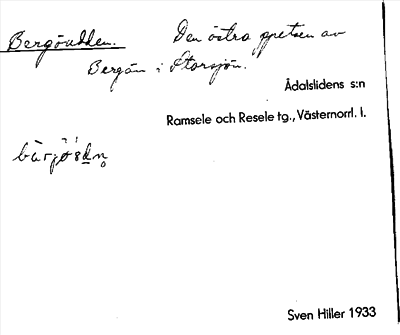 Bergöudden. Den östra spetsen av
Bergön i Storsjön.
Ådalslidens s:n
Ramsele och Resele tg., Västernorrl. l.
Sven Hiller 1933